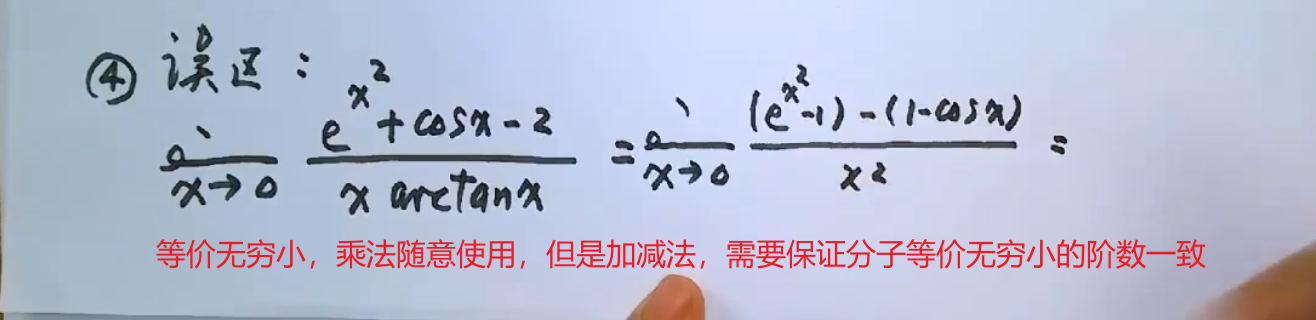 ④ 误区：
lim x→0 (e^(x^2) + cosx - 2) / (x arctanx) = lim x→0 ((e^(x^2) - 1) - (1 - cosx)) / x^2 =
等价无穷小，乘法随意使用，但是加减法，需要保证分子等价无穷小的阶数一致